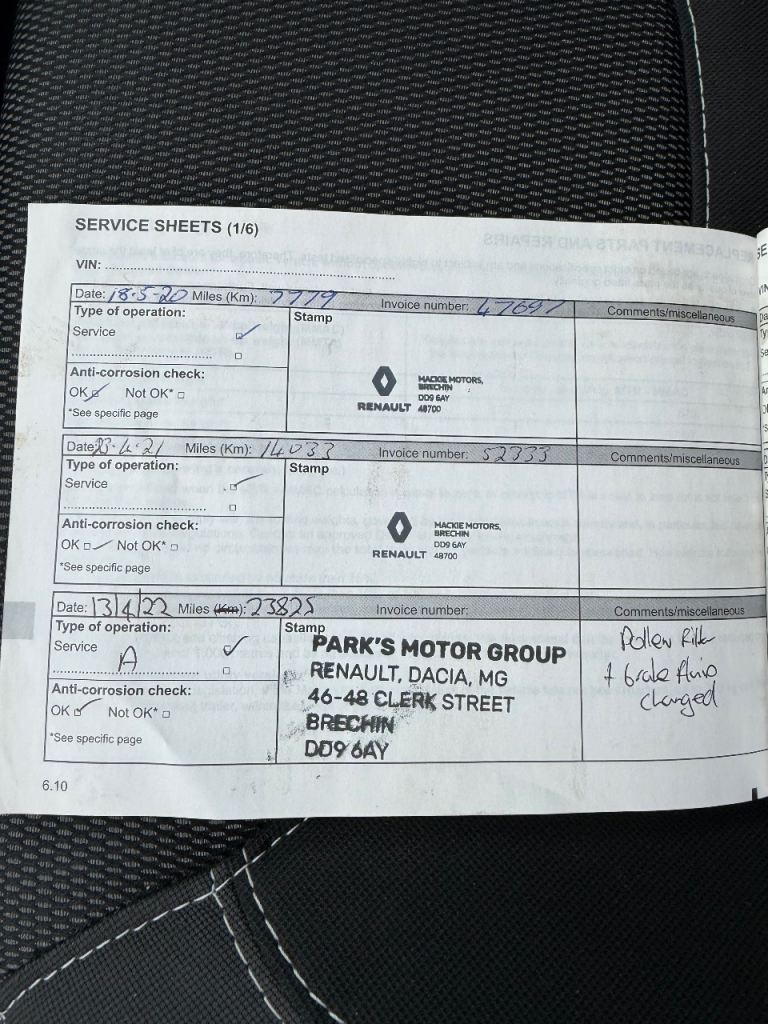 SERVICE SHEETS (1/6)
VIN:
Date: 18-5-20 Miles (Km): 7779 Invoice number: 47697 Comments/miscellaneous
Type of operation:
Service
Stamp
Anti-corrosion check:
OK Not OK*
*See specific page
RENAULT
MACKIE MOTORS,
BRECHIN
DD9 6AY
48700
Date: 23-4-21 Miles (Km): 14033 Invoice number: 52333 Comments/miscellaneous
Type of operation:
Service
Stamp
Anti-corrosion check:
OK Not OK*
*See specific page
RENAULT
MACKIE MOTORS,
BRECHIN
DD9 6AY
48700
Date: 13/4/22 Miles (Km): 23825 Invoice number: Comments/miscellaneous
Type of operation:
Service
A
Stamp
Anti-corrosion check:
OK Not OK*
*See specific page
PARK'S MOTOR GROUP
RENAULT, DACIA, MG
46-48 CLERK STREET
BRECHIN
DD9 6AY
Pollen Filter
+ brake fluid
changed
6.10